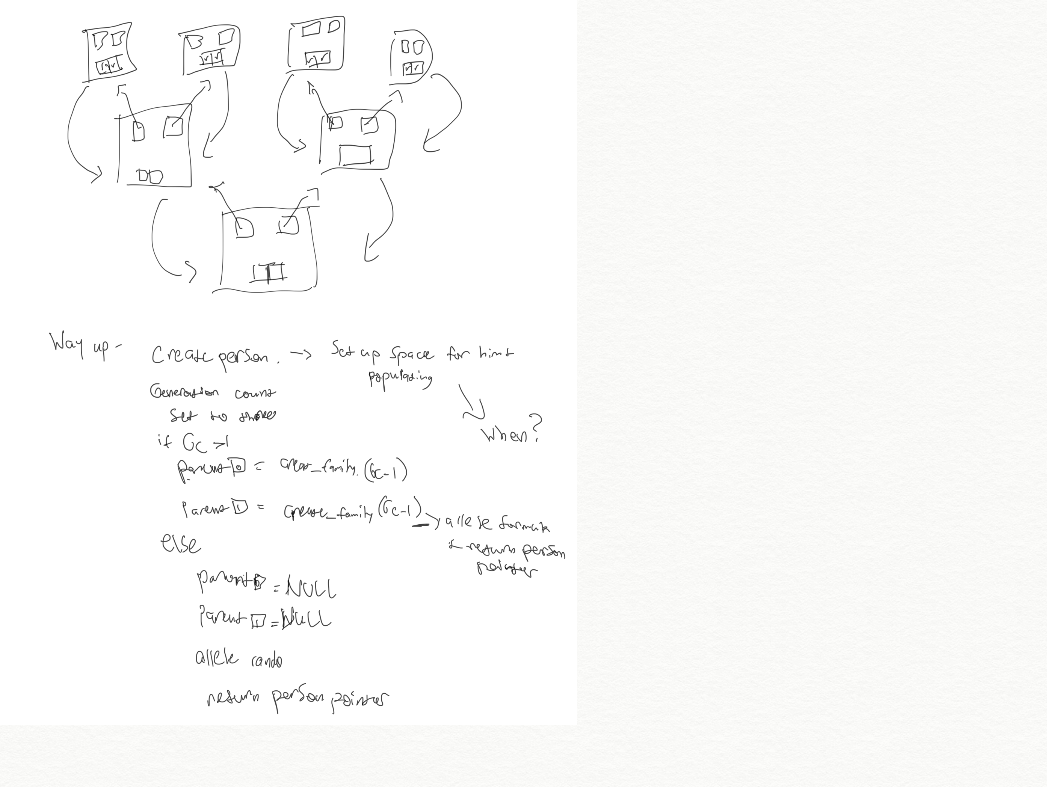 Way up - Create person. -> Set up space for him &
populating
When?
Generation count
Set to three
if Gc >1
parent[0] = create_family(Gc-1)
Parent[1] = create_family(Gc-1) -> allele format
& return person
pointer
else
parent[0] = NULL
Parent[1] = NULL
allele rando
return person pointer